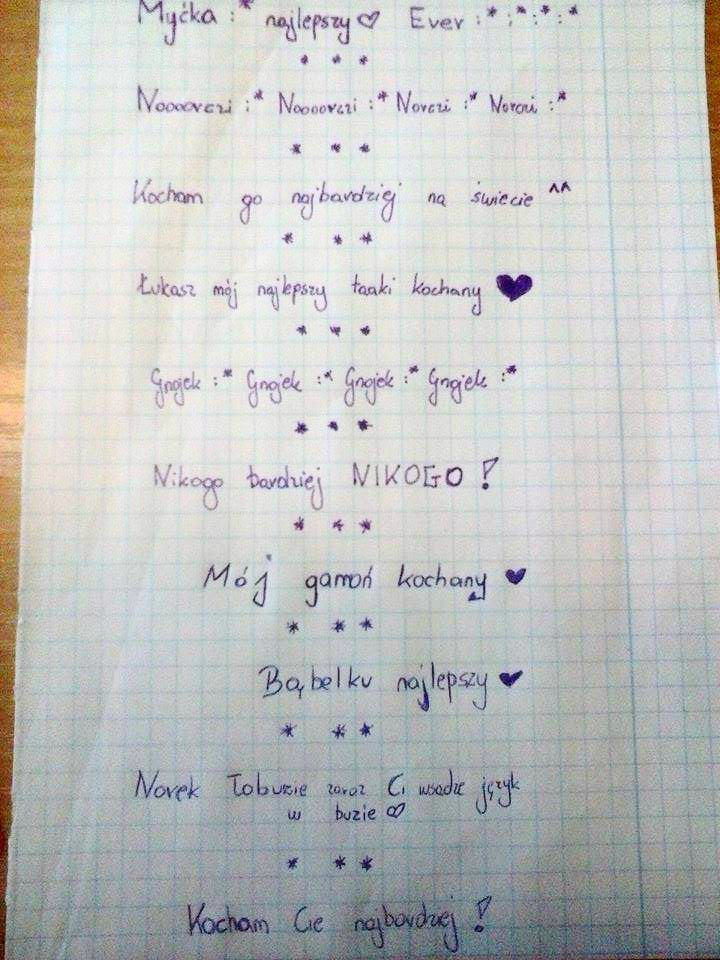 Myćka :* najlepszy ♡ Ever :* :* :* :*
* * *
Noooorczi :* Noooorczi :* Norczi :* Norczi :*
* * *
Kocham go najbardziej na świecie ^^
* * *
Łukasz mój najlepszy taaki kochany ♥
* * *
Gnojek :* Gnojek :* Gnojek :* Gnojek :*
* * *
Nikogo bardziej NIKOGO !
* * *
Mój gamoń kochany ♥
* * *
Bąbelku najlepszy ♥
* * *
Norek Łobuzie zaraz Ci wsadze język
w buzie ♡
* * *
Kocham Cie najbardziej !